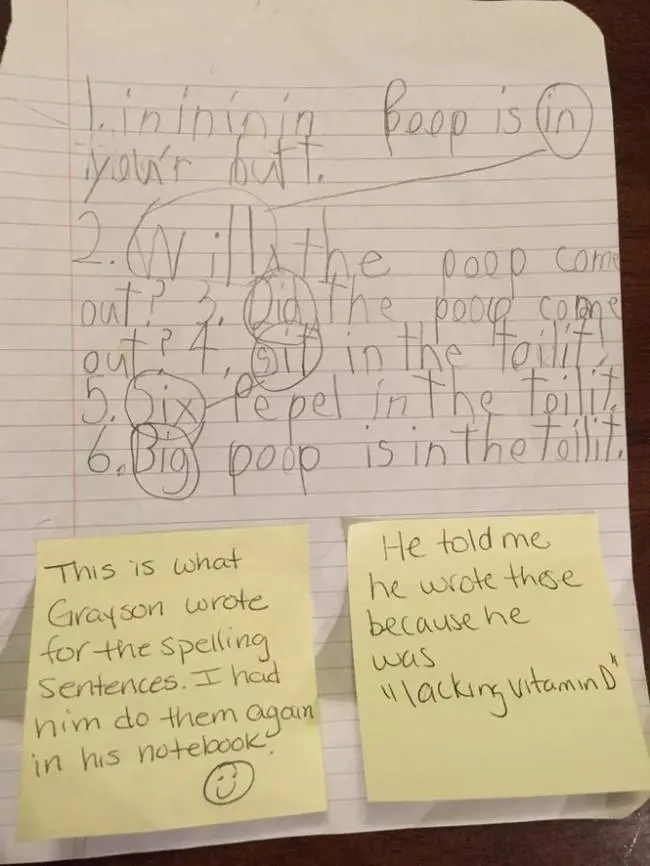 1. in in in in Poop is in
you'r butt.
2. Will the poop come
out? 3. Did the poop come
out? 4. sit in the toilit!
5. Six Pepel in the toilit.
6. Big poop is in the toilit.
This is what
Grayson wrote
for the spelling
sentences. I had
him do them again
in his notebook.
He told me
he wrote these
because he
was
"lacking vitamin D"